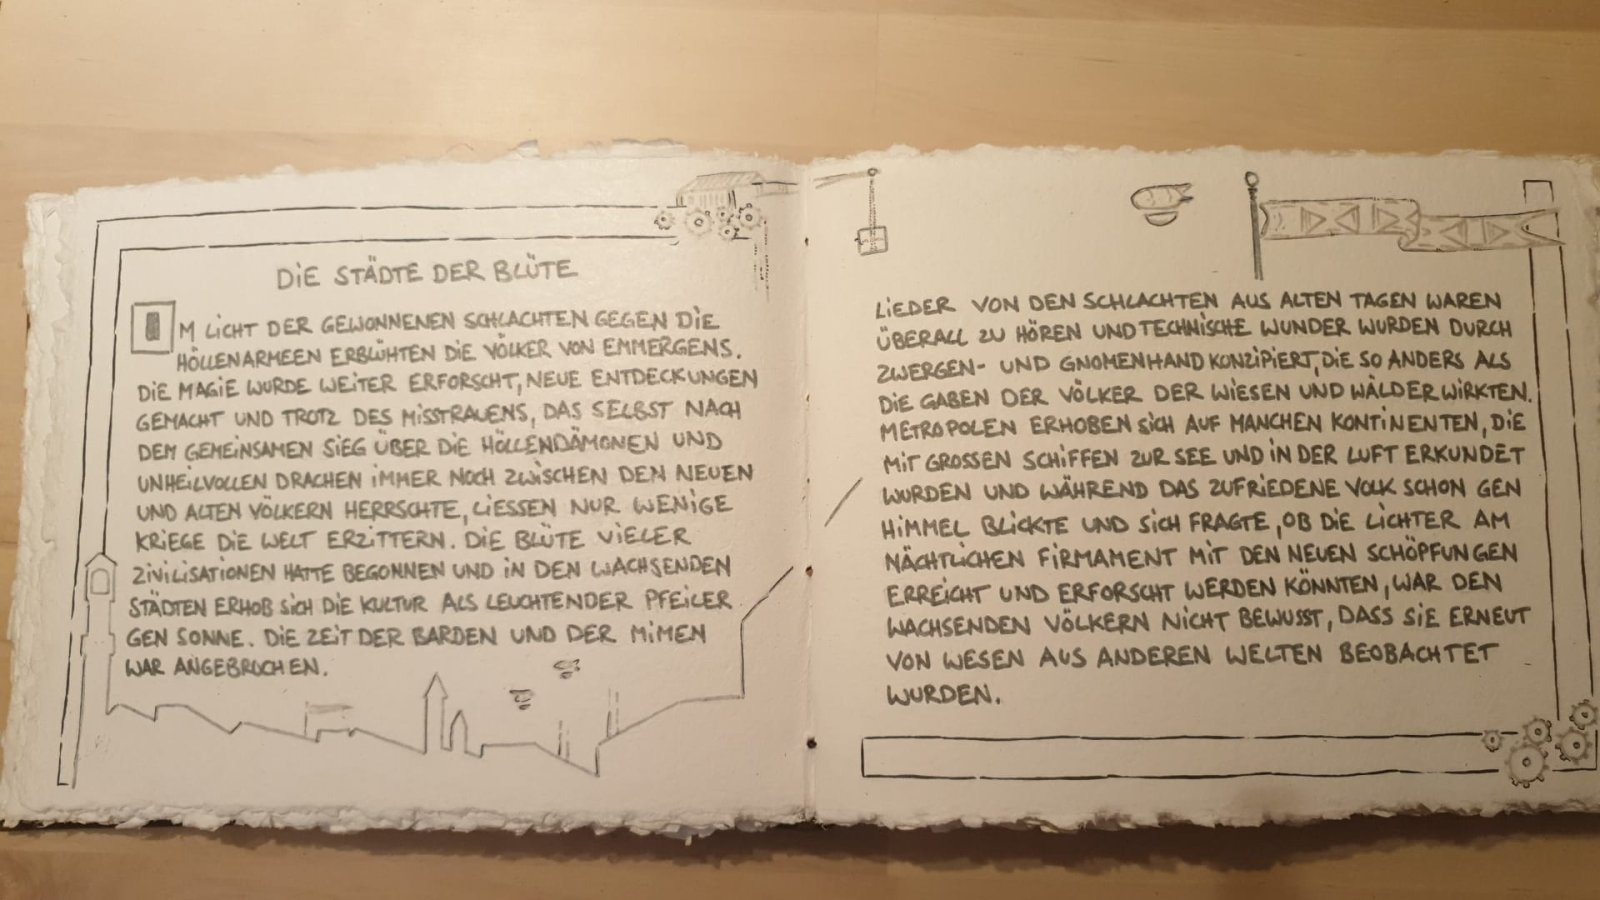 DIE STÄDTE DER BLÜTE
IM LICHT DER GEWONNENEN SCHLACHTEN GEGEN DIE
HÖLLENARMEEN ERBLÜHTEN DIE VÖLKER VON EMMERGENS.
DIE MAGIE WURDE WEITER ERFORSCHT, NEUE ENTDECKUNGEN
GEMACHT UND TROTZ DES MISSTRAUENS, DAS SELBST NACH
DEM GEMEINSAMEN SIEG ÜBER DIE HÖLLENDÄMONEN UND
UNHEILVOLLEN DRACHEN IMMER NOCH ZWISCHEN DEN NEUEN
UND ALTEN VÖLKERN HERRSCHTE, LIESSEN NUR WENIGE
KRIEGE DIE WELT ERZITTERN. DIE BLÜTE VIELER
ZIVILISATIONEN HATTE BEGONNEN UND IN DEN WACHSENDEN
STÄDTEN ERHOB SICH DIE KULTUR ALS LEUCHTENDER PFEILER
GEN SONNE. DIE ZEIT DER BARDEN UND DER MIMEN
WAR ANGEBROCHEN.
LIEDER VON DEN SCHLACHTEN AUS ALTEN TAGEN WAREN
ÜBERALL ZU HÖREN UND TECHNISCHE WUNDER WURDEN DURCH
ZWERGEN- UND GNOMENHAND KONZIPIERT, DIE SO ANDERS ALS
DIE GABEN DER VÖLKER DER WIESEN UND WÄLDER WIRKTEN.
METROPOLEN ERHOBEN SICH AUF MANCHEN KONTINENTEN, DIE
MIT GROSSEN SCHIFFEN ZUR SEE UND IN DER LUFT ERKUNDET
WURDEN UND WÄHREND DAS ZUFRIEDENE VOLK SCHON GEN
HIMMEL BLICKTE UND SICH FRAGTE, OB DIE LICHTER AM
NÄCHTLICHEN FIRMAMENT MIT DEN NEUEN SCHÖPFUNGEN
ERREICHT UND ERFORSCHT WERDEN KÖNNTEN, WAR DEN
WACHSENDEN VÖLKERN NICHT BEWUSST, DASS SIE ERNEUT
VON WESEN AUS ANDEREN WELTEN BEOBACHTET
WURDEN.